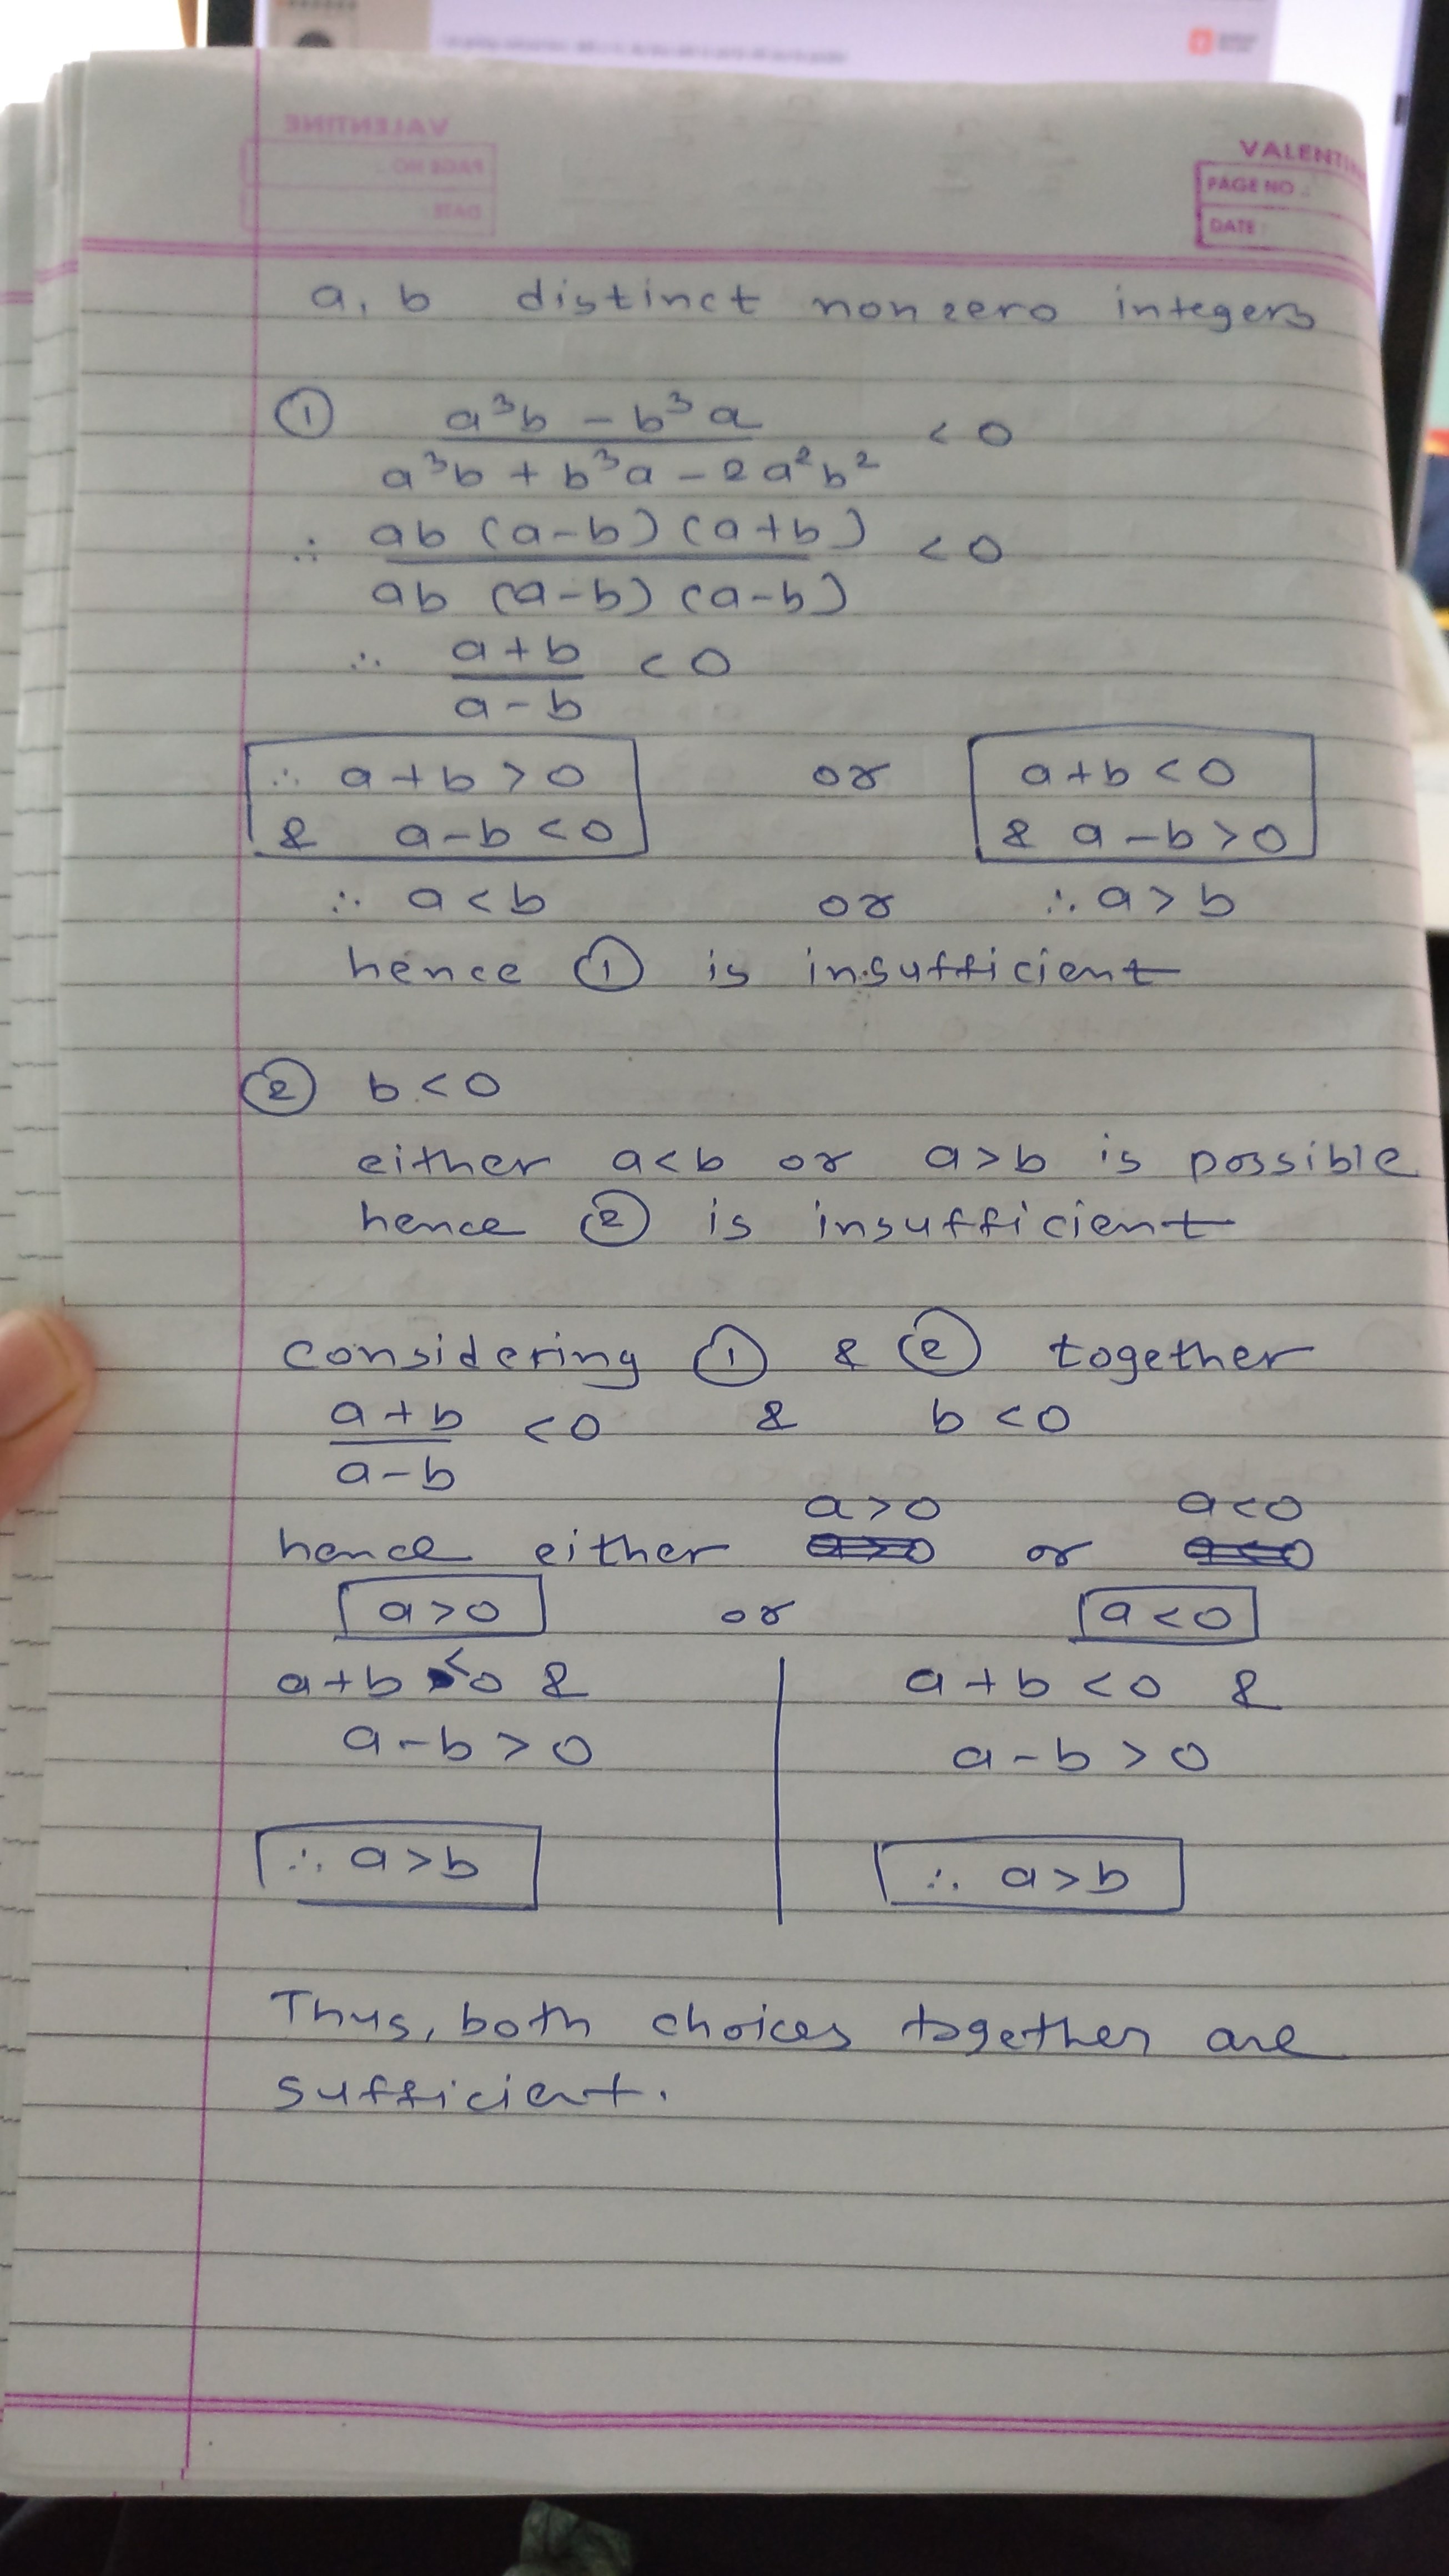 VALENTINE
PAGE NO :
DATE :
VALENTIN
PAGE NO :
DATE :
a, b distinct nonzero integers
① a³b - b³a / a³b + b³a - 2a²b² < 0
∴ ab (a-b) (a+b) / ab (a-b) (a-b) < 0
∴ a+b / a-b < 0
∴ a+b > 0 or a+b < 0
& a-b < 0 & a-b > 0
∴ a < b or ∴ a > b
hence ① is insufficient
② b < 0
either a<b or a>b is possible
hence ② is insufficient
considering ① & ② together
a+b / a-b < 0 & b < 0
a>0 a<0
hence either or
a>0 or a<0
a+b < 0 & a+b < 0 &
a-b > 0 a-b > 0
∴ a>b ∴ a>b
Thus, both choices together are
sufficient.